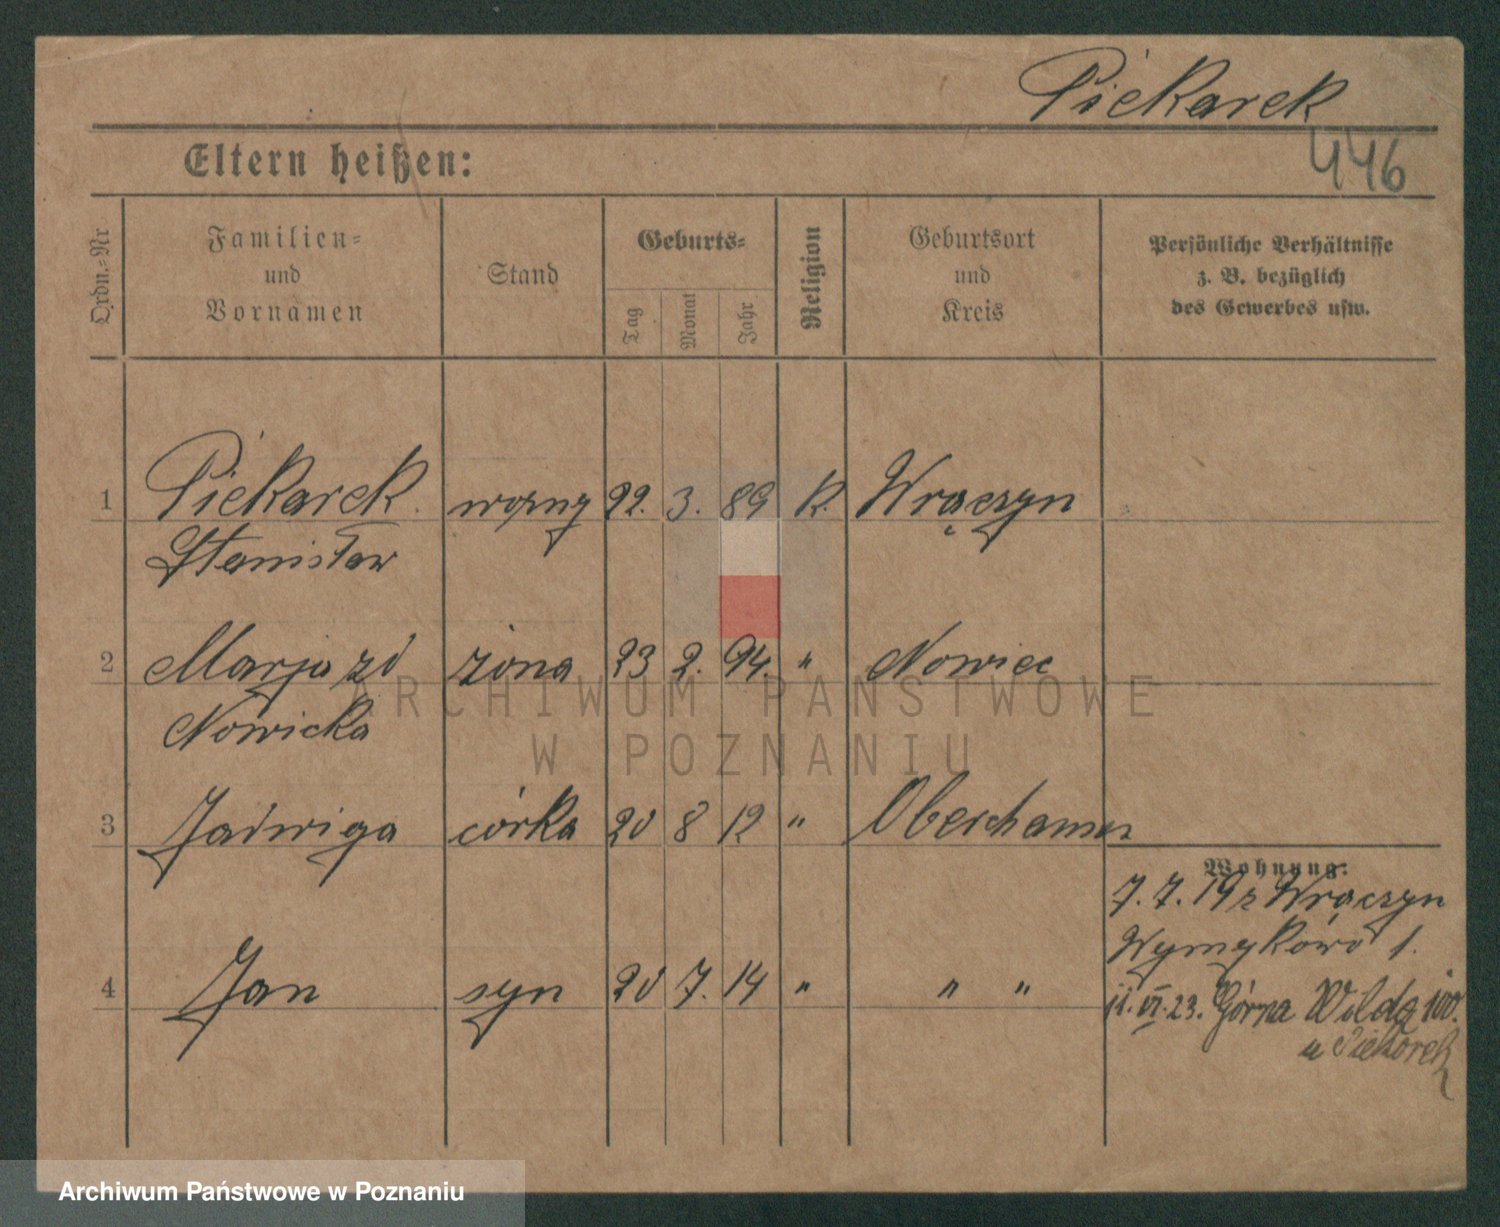 Piekarek
446
Eltern heißen:
Ordn.-Nr
Familien- und Vornamen
Stand
Geburts-
Tag
Monat
Jahr
Religion
Geburtsort und Kreis
Persönliche Verhältnisse
z. B. bezüglich
des Gewerbes usw.
1 Piekarek woźny 22. 3. 89 K. Wrączyn
Stanisław
2 Marja zd żona 23 2. 94. " Nowiec
Nowicka
3 Jadwiga córka 20 8 12 "
Wohnung:
7. 7. 19 z Wrączyn
1.
4 Jan syn 20 7. 14 " " "
11. VI. 23. Górna Wilda 100.
u Piekarek
ARCHIWUM PAŃSTWOWE
W POZNANIU
Archiwum Państwowe w Poznaniu